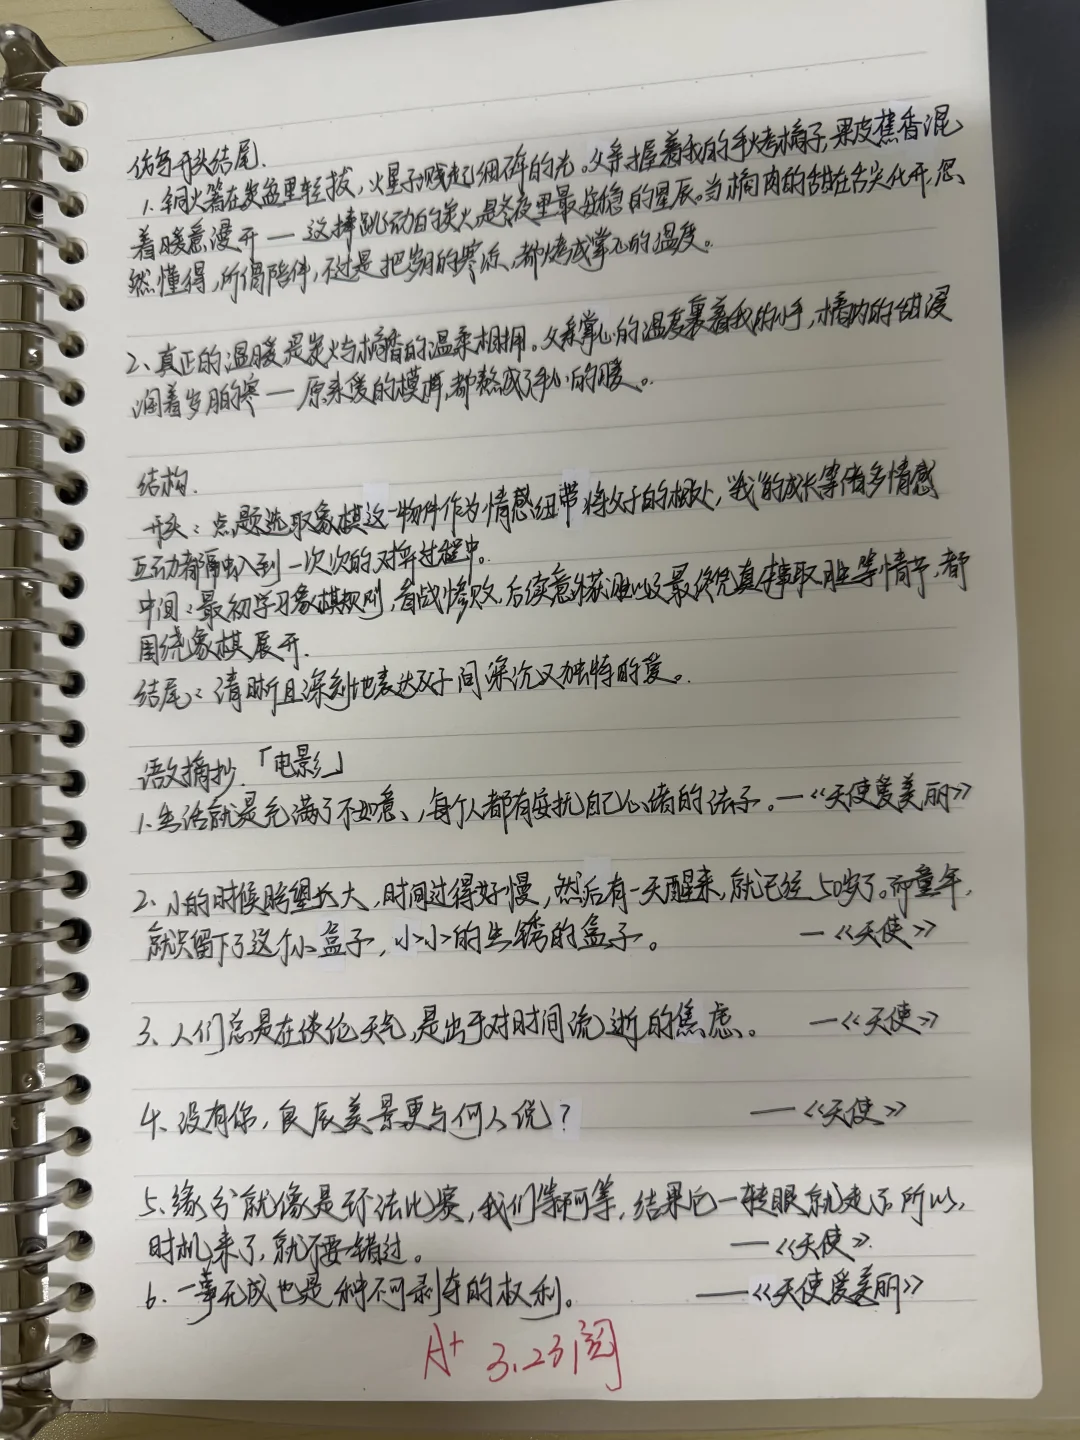 仿写开头结尾.
1. 铜火箸在炭盆里轻拔，火星子溅起细碎的光。父亲握着我的手烤橘子，果皮蕉香混
着暖意漫开—这捧跳动的炭火是冬夜里最安稳的星辰。当橘肉的甜在舌尖化开，忽
然懂得，所谓陪伴，不过是把岁月的寒凉，都烤成掌心的温度。
2、真正的温暖是炭火与橘香的温柔相拥。父亲掌心的温度裹着我的小手，橘肉的甜浸
润着岁月的寒—原来爱的模样，都熬成了手心的暖。
结构.
开头：点题选取象棋这一物件作为情感纽带将父子的相处，“我”的成长等诸多情感
互动都隔‌到一次次的对弈过程中。
中间：最初学习象棋规则，首战惨败，后续意外获胜以及最终凭真本事取胜等情节，都
围绕象棋展开.
结尾：清晰且深刻地表达父子间深沉又独特的爱。
语文摘抄.「电影」
1. 生活就是充满了不如意、，每个人都有安抚自己心绪的法子。—《天使爱美丽》
2、小的时候盼望长大，时间过得好慢，然后有一天醒来，就已经50岁了。而童年，
就只留下了这个小盒子，小小的生锈的盒子。 —《天使》
3、人们总是在谈论天气，是出于对时间流逝的焦虑。 —《天使》
4. 没有你，良辰美景更与何人说？ ——《天使》
5、缘分就像是环法比赛，我们等啊等，结果它一转眼就走了。所以，
时机来了，就不要错过。 ——《天使》.
6. 一事无成也是种不可剥夺的权利。 ——《天使爱美丽》
A+ 3.23阅